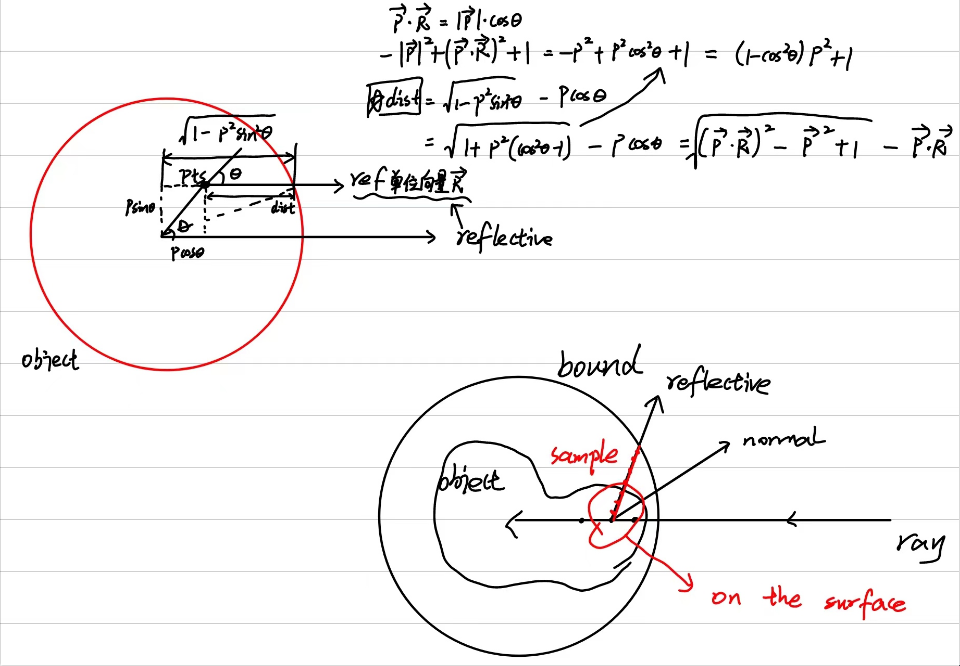 P⃗·R⃗ = |P⃗|·cosθ
-|P⃗|²+(P⃗·R⃗)²+1 = -P²+P²cos²θ+1 = (1-cos²θ)P²+1
dist = √(1-P²sin²θ) - Pcosθ
= √(1+P²(cos²θ-1)) - Pcosθ = √((P⃗·R⃗)² - P⃗²+1) - P⃗·R⃗
√(1-P²sin²θ)
pts
θ
ref 单位向量R⃗
Psinθ
dist
θ
reflective
Pcosθ
object
bound
reflective
normal
sample
object
ray
on the surface